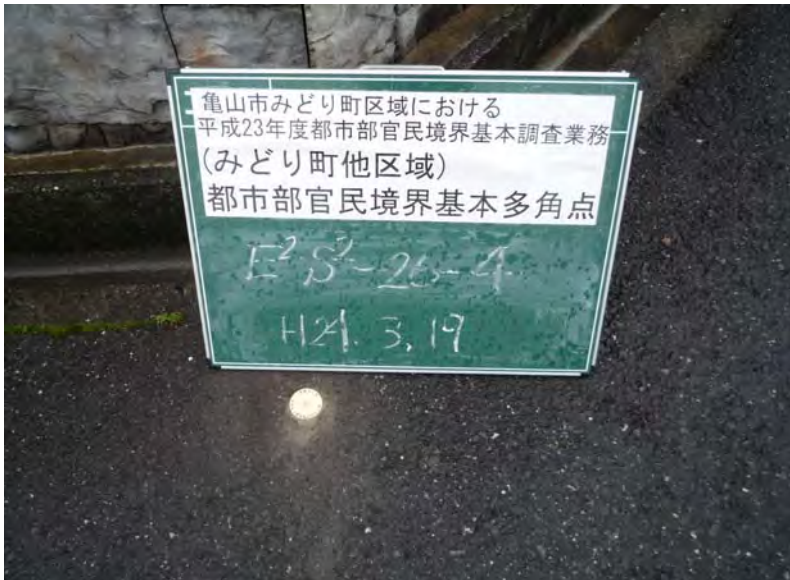 亀山市みどり町区域における
平成23年度都市部官民境界基本調査業務
(みどり町他区域)
都市部官民境界基本多角点
E²S²-26-4
H24.3.19